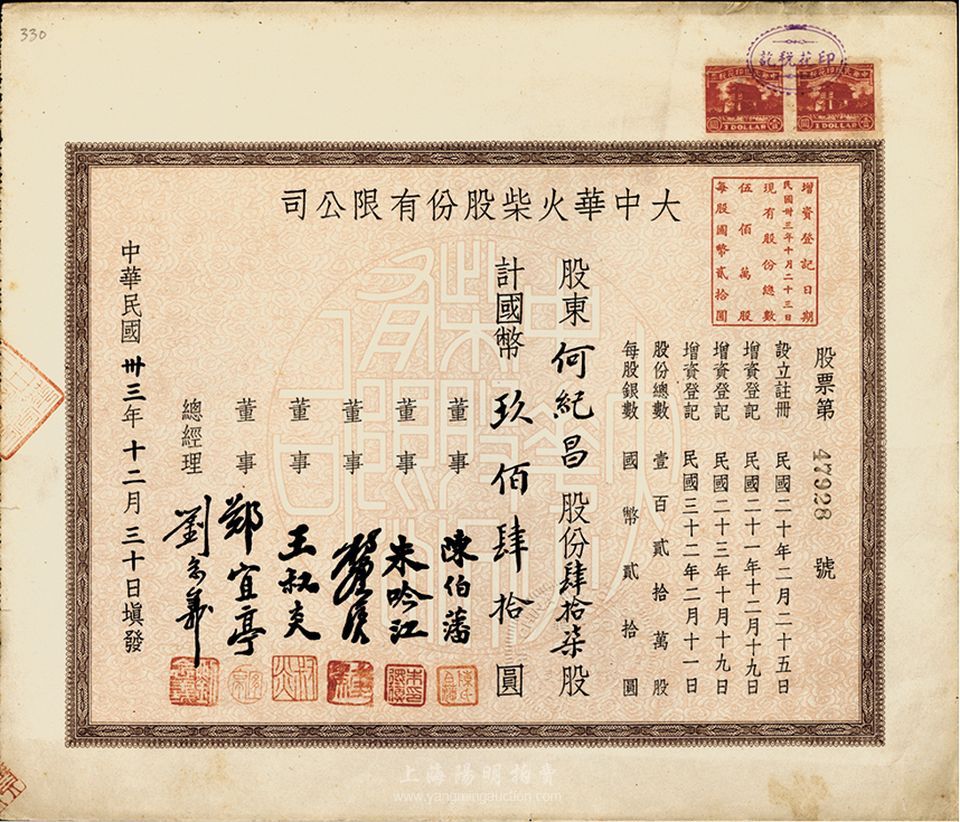 330
印花稅訖
中華民國印花稅票
1 DOLLAR
中華民國印花稅票
1 DOLLAR
大中華火柴股份有限公司
增資登記日期
民國卅三年十月二十三日
現有股份總數
伍佰萬股
每股國幣貳拾圓
股票第 47928 號
設立註冊 民國二十年二月二十五日
增資登記 民國二十一年十二月十九日
增資登記 民國二十三年十月十九日
增資登記 民國三十二年二月十一日
股份總數 壹百貳拾萬股
每股銀數 國幣貳拾圓
股東何紀昌股份肆拾柒股
計國幣玖佰肆拾圓
董事 陳伯藩
董事 朱吟江
董事
董事 王叔炎
董事 鄭宜亭
總經理 劉念義
中華民國卅三年十二月三十日填發
上海陽明拍賣
www.yangmingauction.com